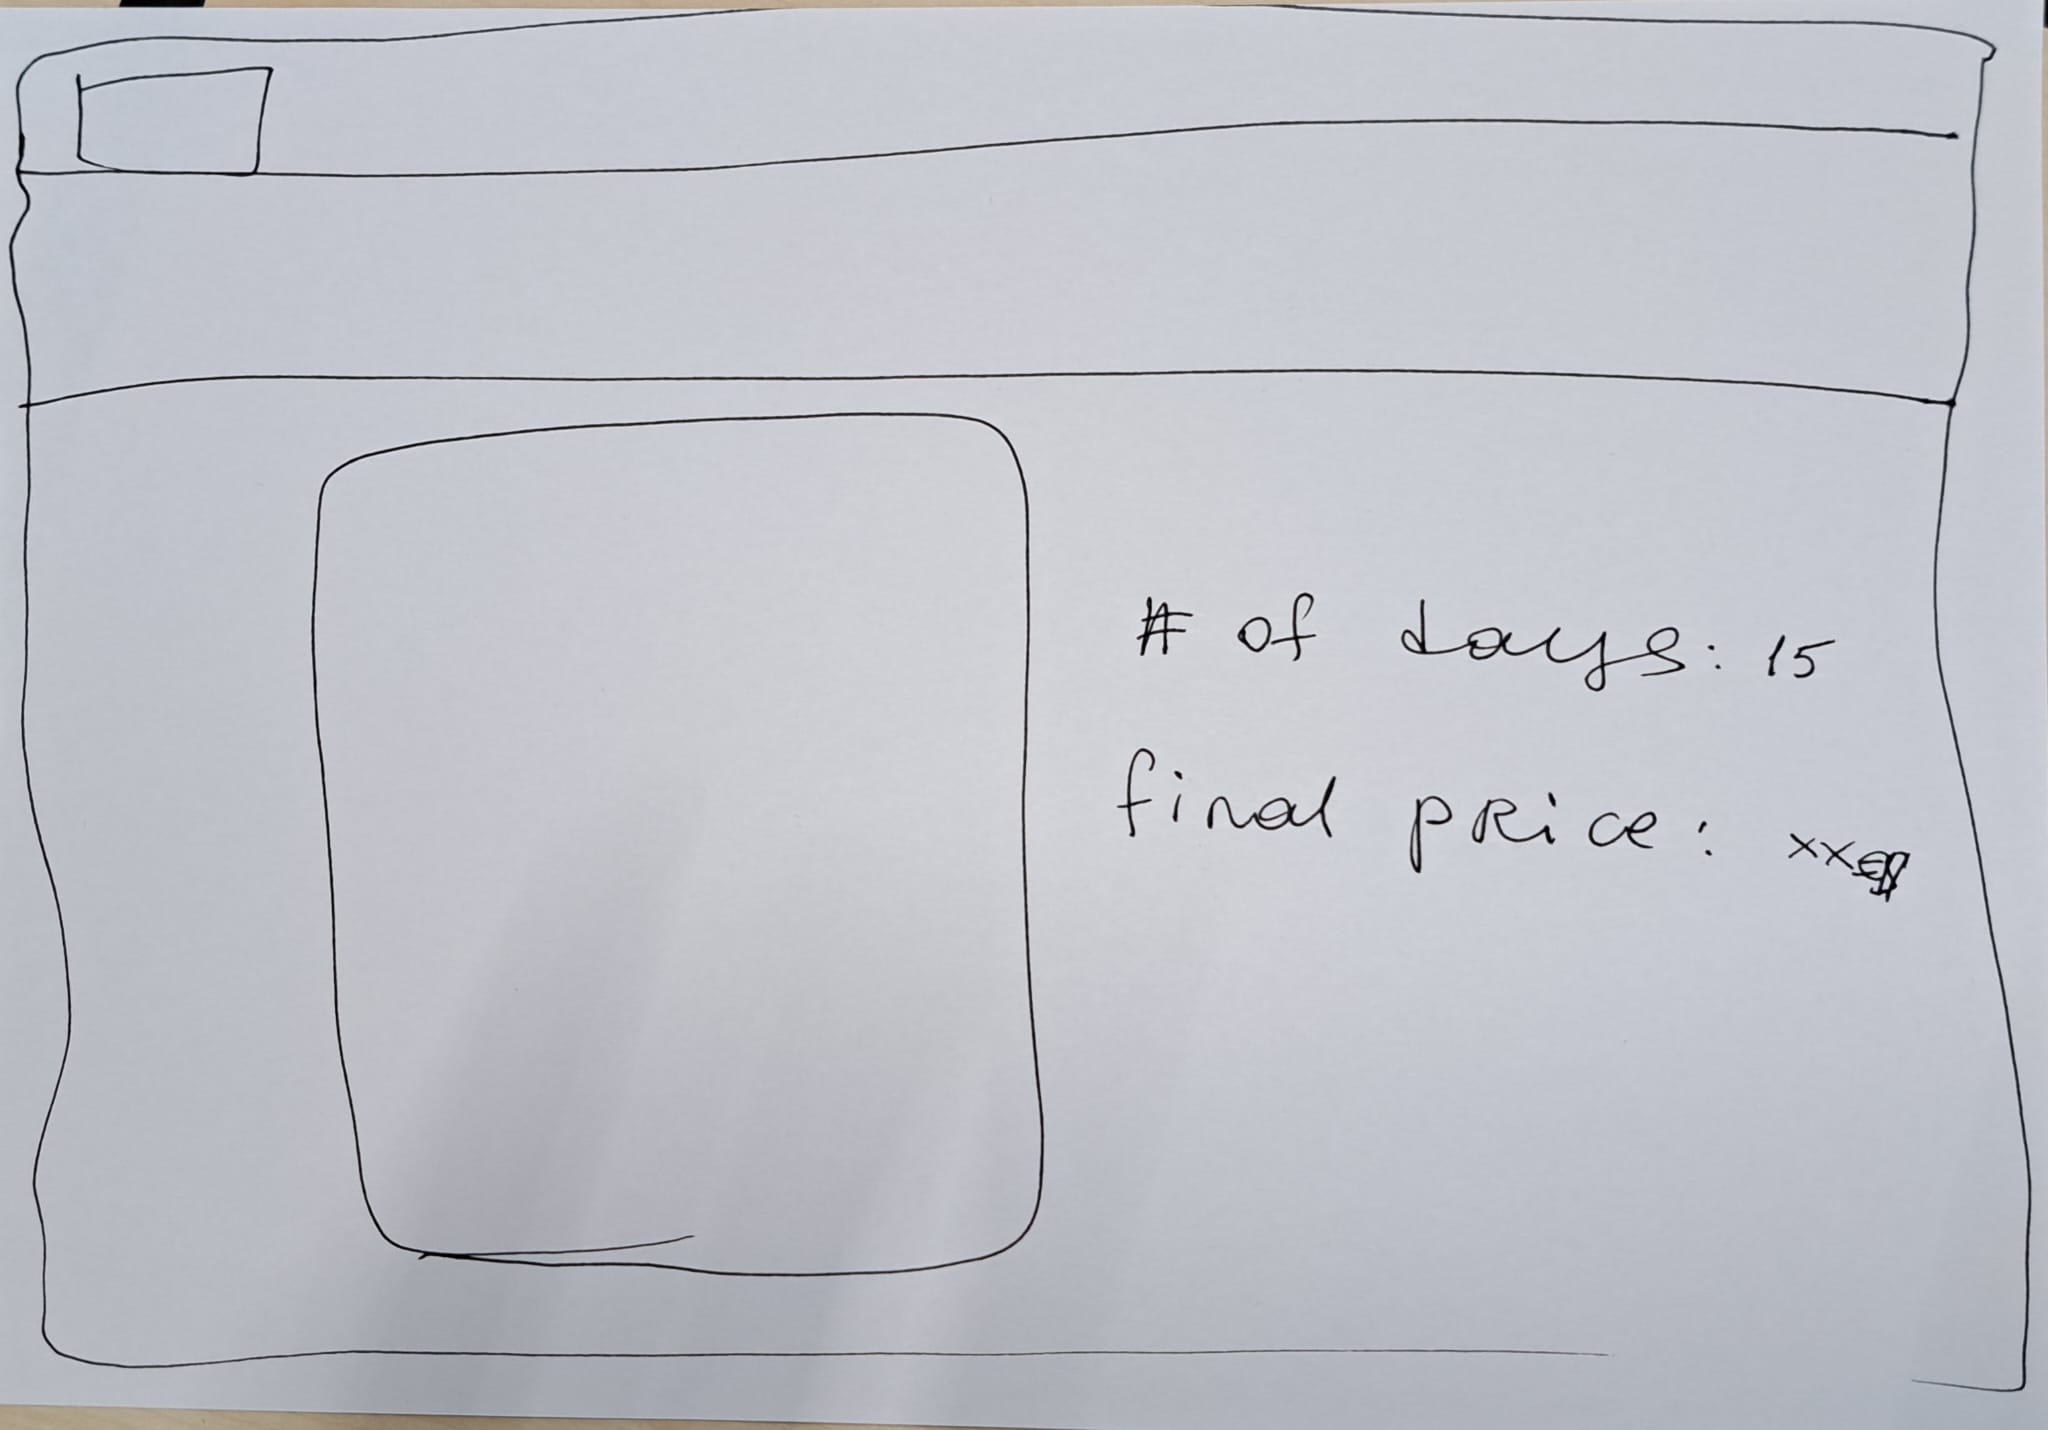 # of days: 15
final price: xx